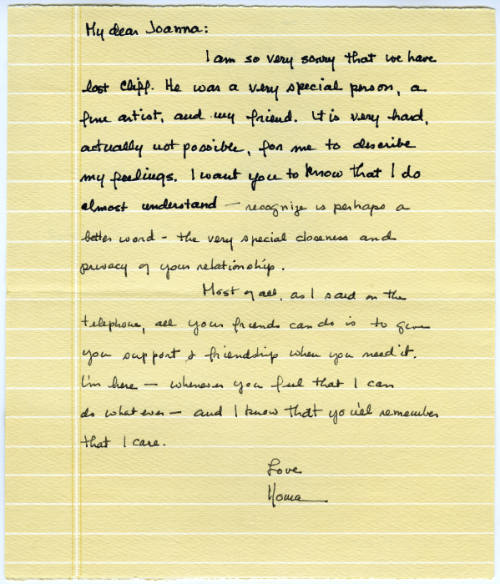 My dear Joanna:
I am so very sorry that we have
lost Cliff. He was a very special person, a
fine artist, and my friend. It is very hard,
actually not possible, for me to describe
my feelings. I want you to know that I do
almost understand — recognize is perhaps a
better word - the very special closeness and
privacy of your relationship.
Most of all, as I said on the
telephone, all your friends can do is to give
you support & friendship when you need it.
I'm here — whenever you feel that I can
do what ever — and I know that you'll remember
that I care.
Love